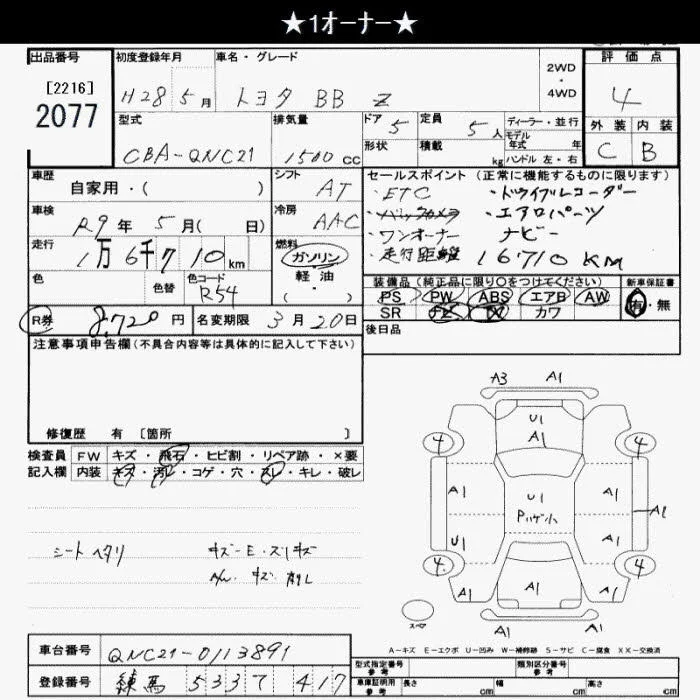 ★1オーナー★
出品番号 初度登録年月 車名・グレード 2WD・4WD 評価点
[2216]
2077
H28 5月 トヨタ BB Z 4
型式 排気量 ドア 5 定員 5人 ディーラー・並行 外装 内装
CBA-QNC21 1500cc 形状 積載 kg モデル年式 年 C B
ハンドル 左・右
車歴 シフト セールスポイント (正常に機能するものに限ります)
自家用・( ) AT ・ETC ・ドライブレコーダー
車検 冷房 ・バックカメラ ・エアロパーツ
R9年 5月( 日) AAC ・ワンオーナー ナビー
走行 燃料 ・走行距離 16710KM
1万6千710km ガソリン
色 色替 色コード 軽油
R54 ( ・ )
装備品(純正品に限り○をつけてください) 新車保証書
PS PW ABS エアB AW 有・無
SR カワ
R券 8,720円 名変期限 3月20日 後日品
注意事項申告欄(不具合内容等は具体的に記入して下さい)
修復歴 有 〔箇所 〕
検査員 FW キズ・飛石・ヒビ割・リペア跡・×要
記入欄 内装 キズ・汚レ・コゲ・穴・スレ・キレ・破レ
シートヘタリ キズ-E・スリキズ
キズ
A3 A1
U1
A1
4 4
A1 U1 A1
Pハゲ小 A1
U1 A1
4 4
A1 A1 A1
A1 A1
スペア
A-キズ E-エクボ U-凹み W-補修跡 S-サビ C-腐食 XX-交換済
車台番号 QNC21-0113891
登録番号 練馬 533 て 417
型式指定番号 参考 類別区分番号 参考
車庫証明用 参考 長さ cm 幅 cm 高さ cm